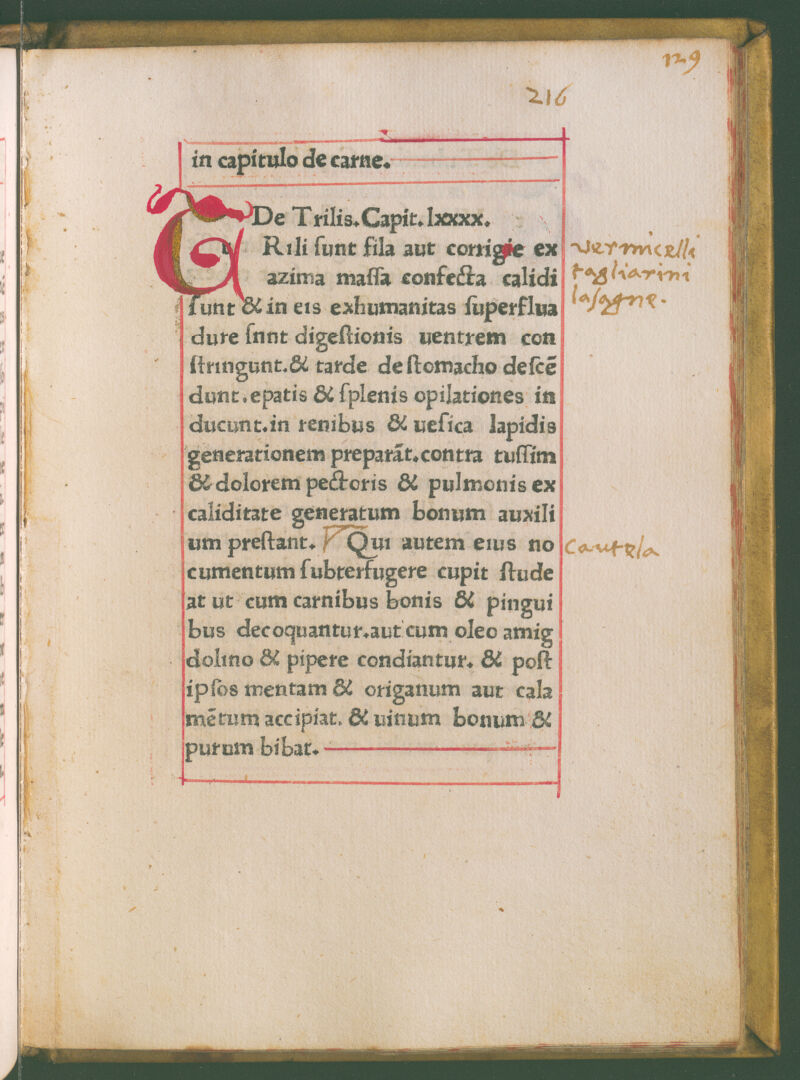 129
216
in capitulo de carne.
De Trilis. Capit. lxxxx.
TRili ſunt fila aut corrigie ex
azima maſſa confecta calidi
ſunt & in eis exhumanitas ſuperflua
dure ſnnt digeſtionis uentrem con
ſtringunt. & tarde de ſtomacho deſcē
dunt. epatis & ſplenis opilationes in
ducunt. in renibus & ueſica lapidis
generationem preparāt. contra tuſſim
& dolorem pectoris & pulmonis ex
caliditate generatum bonum auxili
um preſtant. Qui autem eius no
cumentum ſubterfugere cupit ſtude
at ut cum carnibus bonis & pingui
bus decoquantur. aut cum oleo amig
dolino & pipere condiantur. & poſt
ipſos mentam & origanum aut cala
mētum accipiat. & uinum bonum &
purum bibat.
vermicelli
tagliarini
laſagne.
Cautela